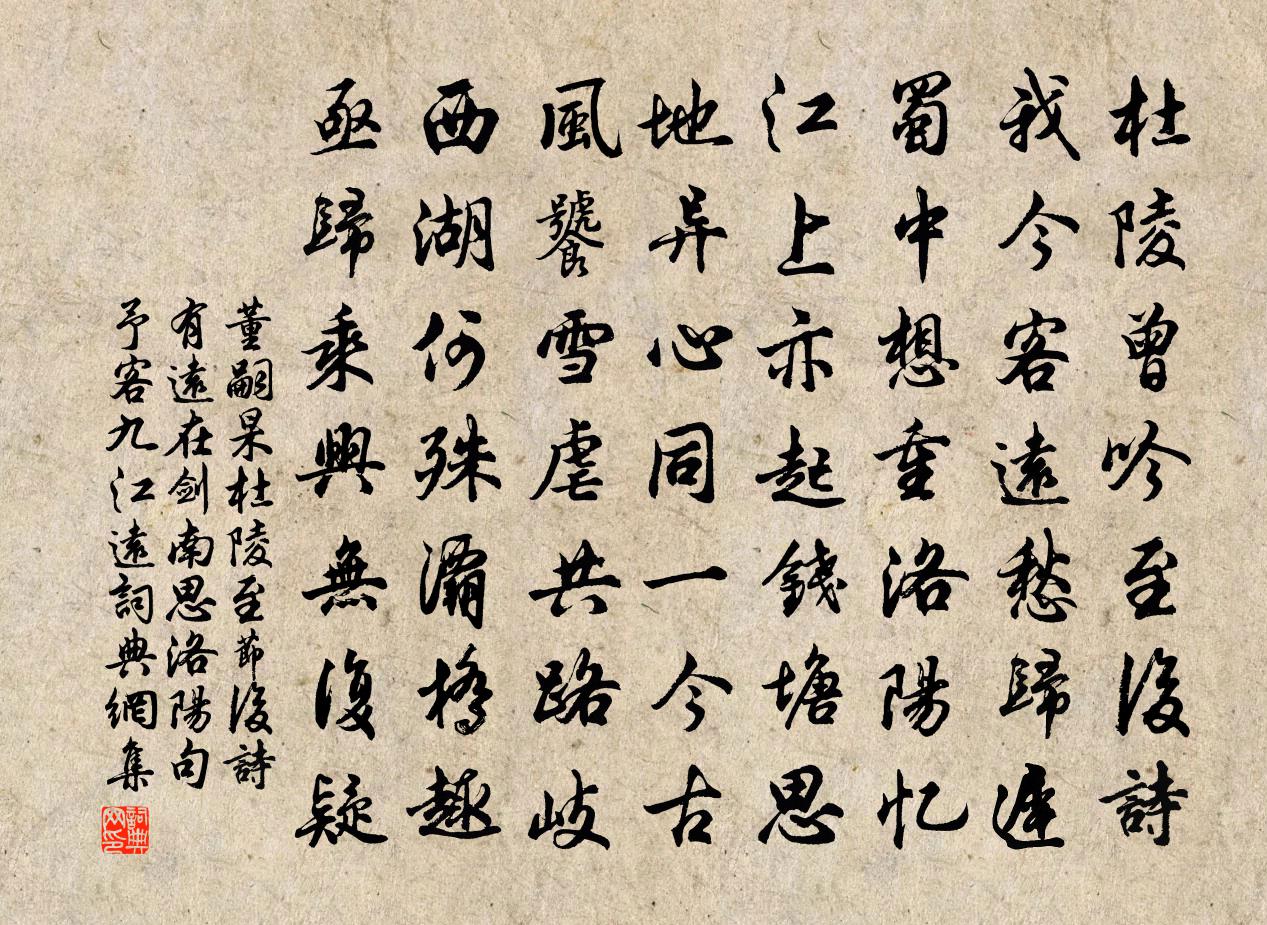 杜陵曾吟至後詩
我今客遠愁歸遲
蜀中想重洛陽忆
江上亦起錢塘思
地异心同一今古
風饕雪虐共路岐
西湖何殊灞橋趣
亟歸乘興無復疑
董嗣杲杜陵至節後詩
有遠在劍南思洛陽句
予客九江遠詞典網集
詞典
网印